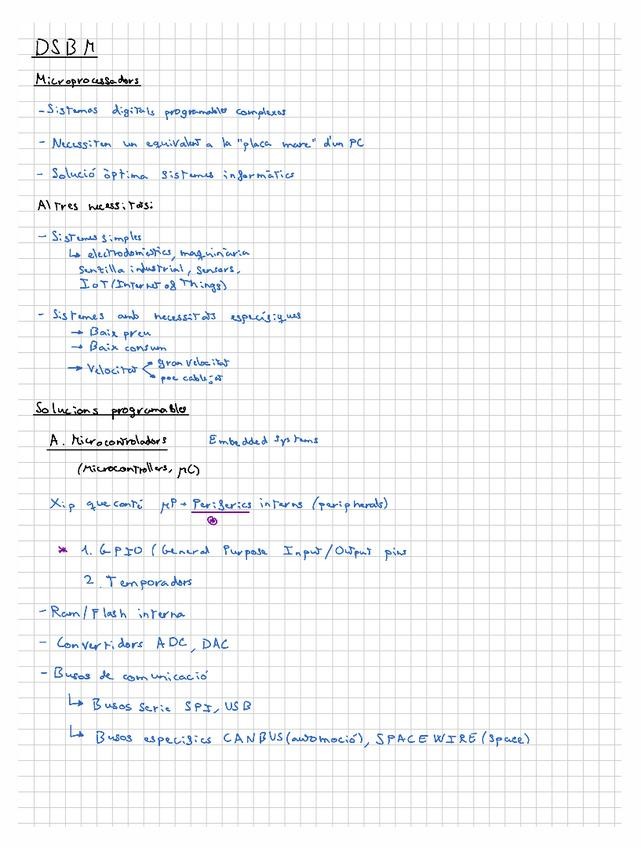 DSBM
Microprocessadors
- Sistemas digitals programables complexos
- Necessiten un equivalent a la "placa mare" d'un PC
- Solució òptima sistemes informàtics
Altres necessitats:
- Sistemes simples
↳ electrodomèstics, maquinària
senzilla industrial, sensors,
IoT (Internet of Things)
- Sistemes amb necessitats específiques
→ Baix preu
→ Baix consum
→ Velocitat < gran velocitat
poc cablejat
Solucions programables
A. Microcontroladors Embedded Systems
(Microcontrollers, μC)
Xip que conté μP + Perifèrics interns (peripherals)
* 1. GPIO (General Purpose Input/Output pins
2. Temporadors
- Ram/Flash interna
- Convertidors ADC, DAC
- Busos de comunicació
↳ Busos serie SPI, USB
↳ Busos especifics CANBUS (automoció), SPACEWIRE (space)